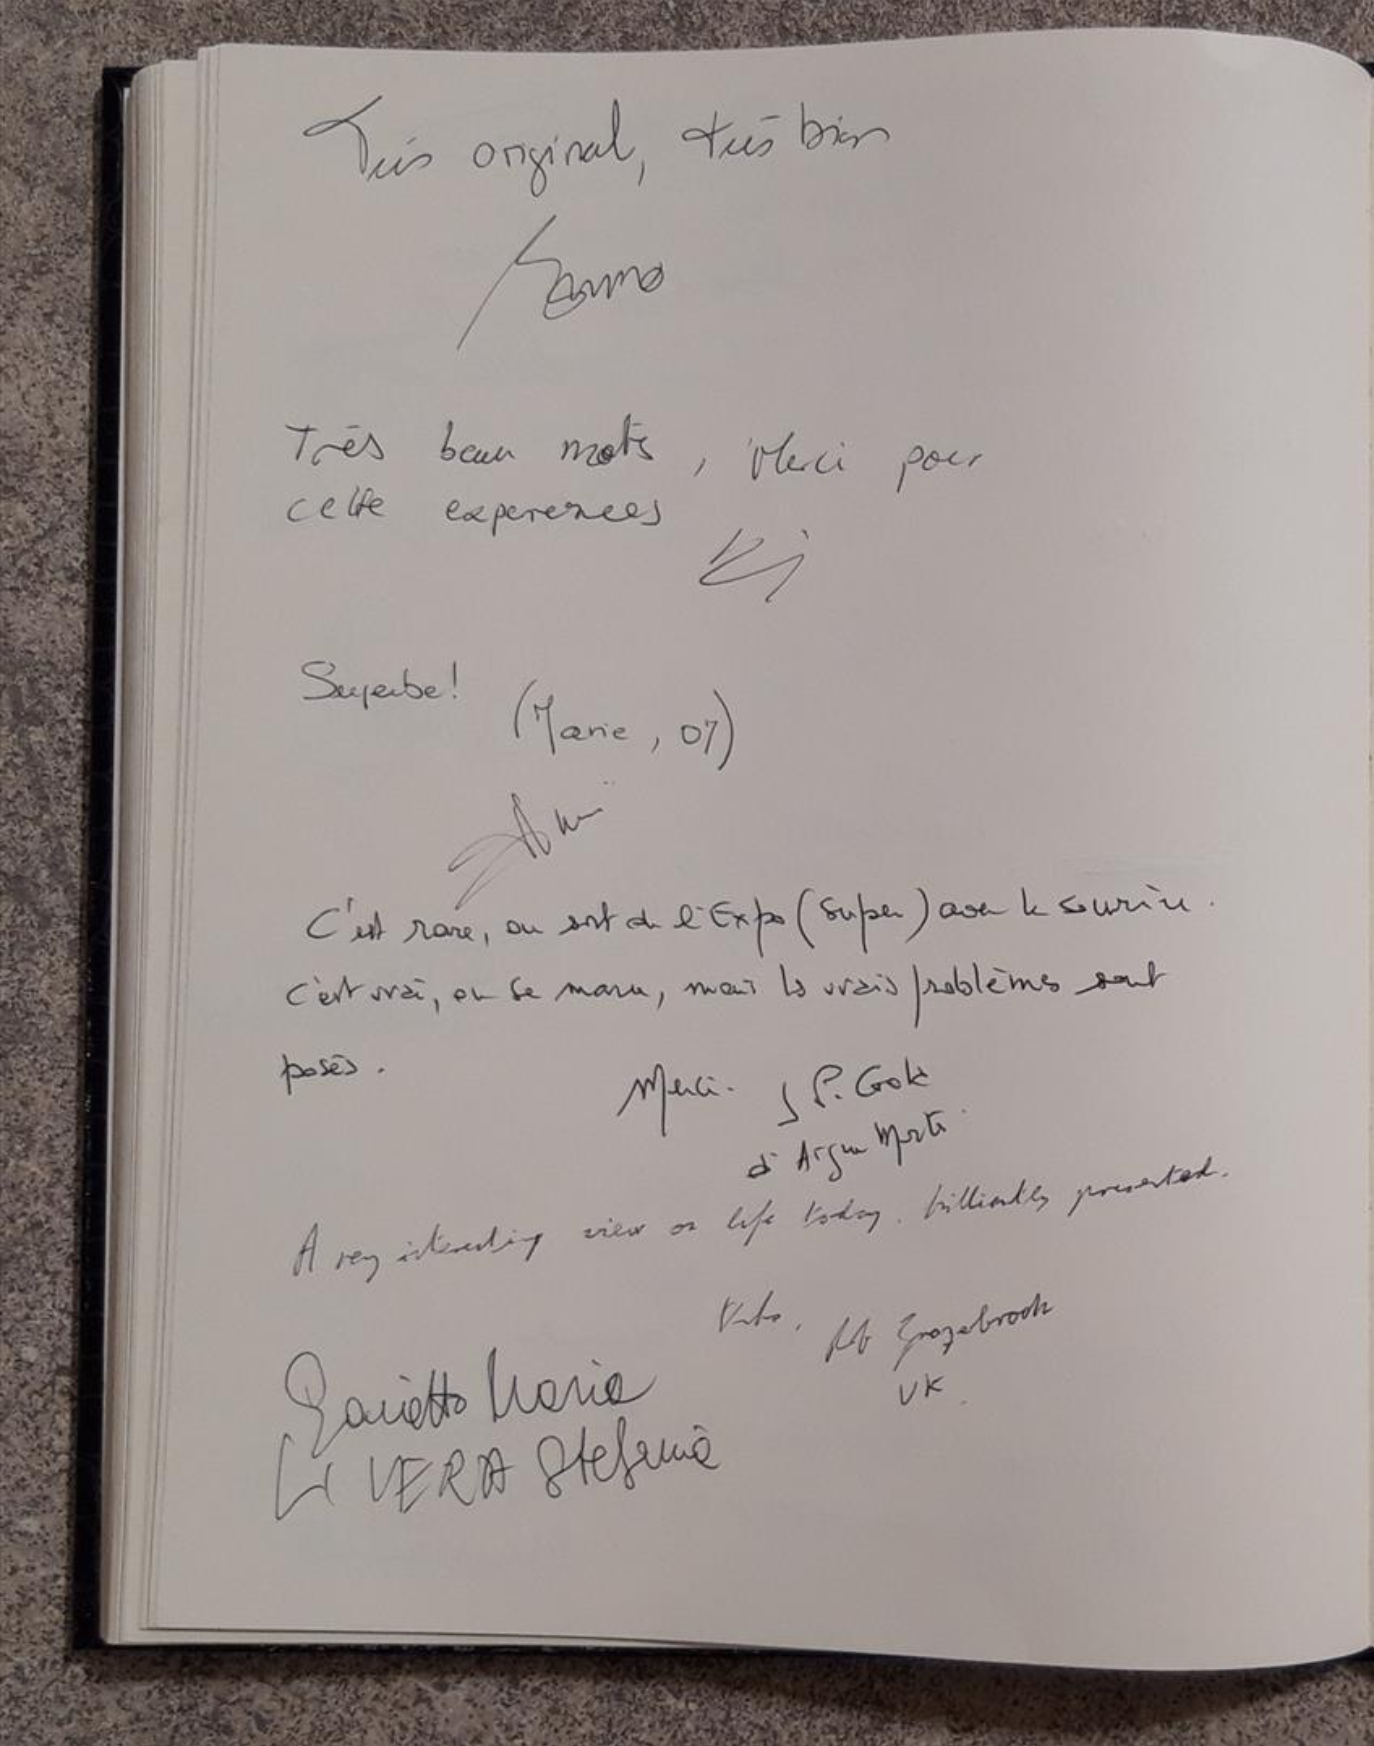 Très original, très bien
Très beau mots, Merci pour
cette experences
Superbe!
(Marie, 07)
C'est rare, on sort de l'Expo (super) avec le sourire.
c'est vrai, on se marre, mais les vrais problèmes sont
posés.
Merci. J P. 
d'Aigues Mortes
A very interesting view on life today. brilliantly presented.
Grazebrook
UK
Maria
VERA Stefania